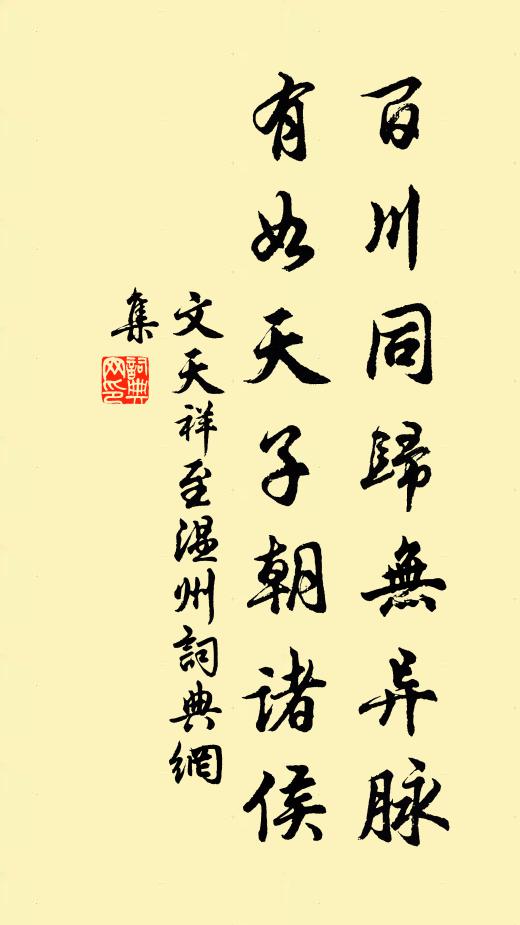 百川同歸無异脉
有如天子朝諸侯
文天祥至温州詞典網
集
詞典网印